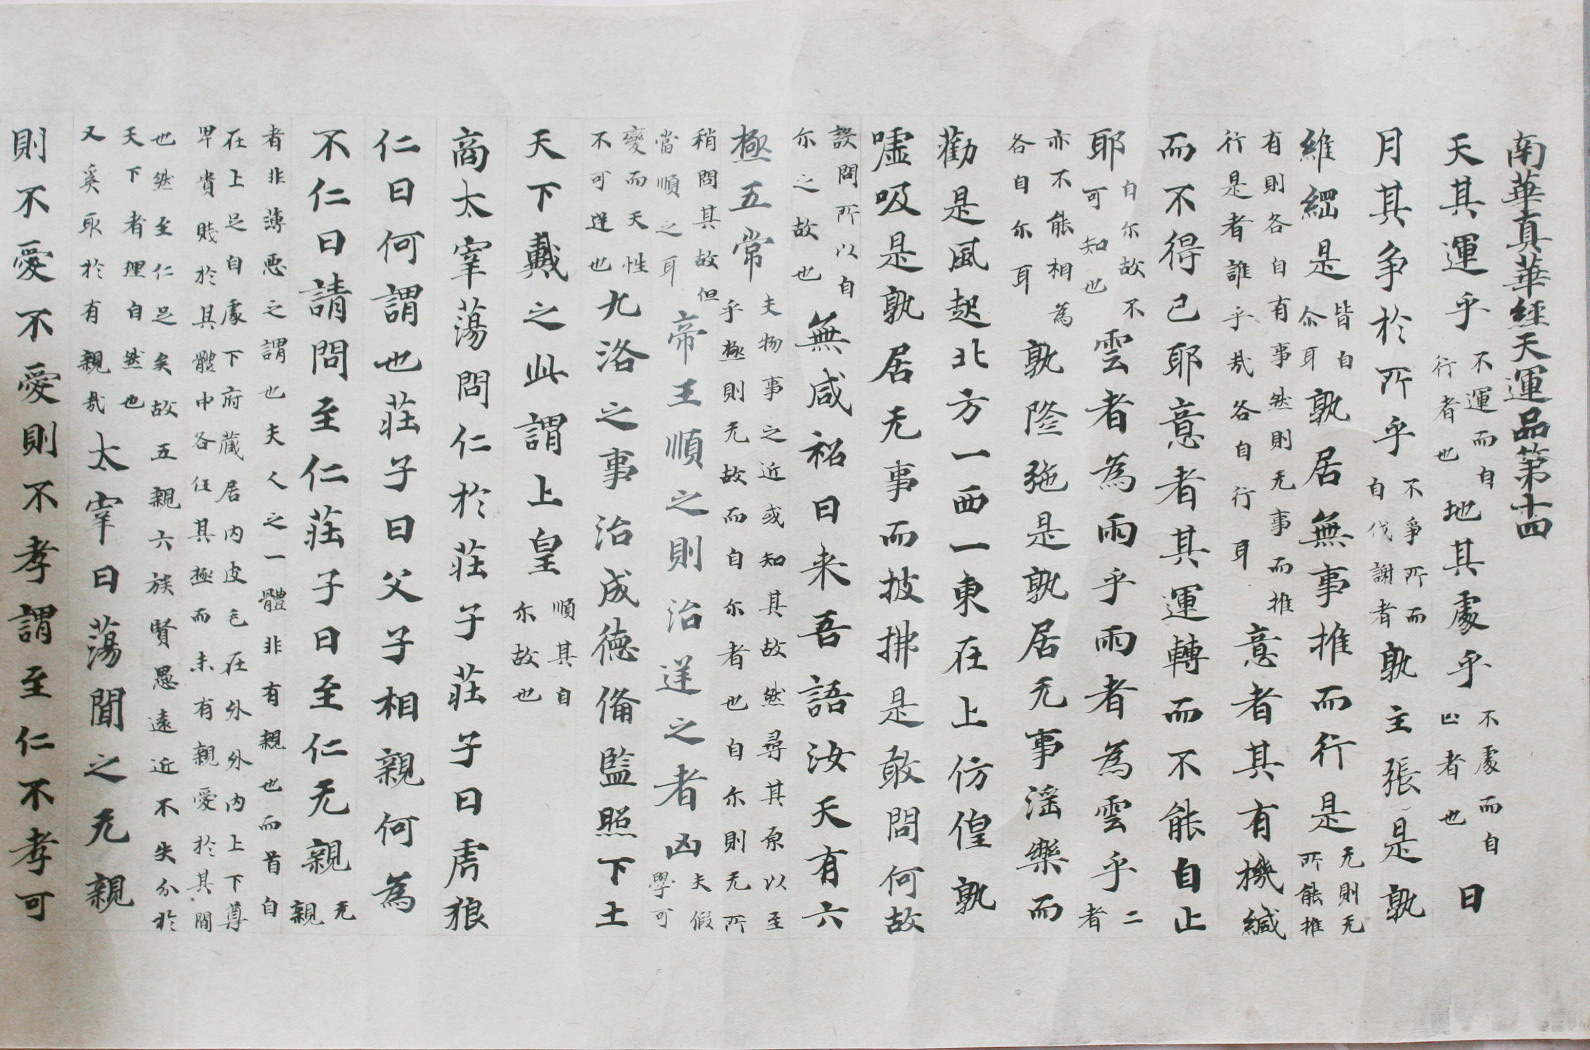 南華真華經天運品第十四
天其運乎不運而自行者也地其處乎不處而自止者也日
月其争於所乎不爭所而自代謝者孰主張是孰
維綱是皆自尒耳孰居無事推而行是无則无所能推
有則各自有事然則无事而推行是者誰乎㢤各自行耳意者其有機緘
而不得已耶意者其運轉而不能自止
耶自尔故不可知也雲者為雨乎雨者為雲乎二者
亦不能相為各自尓耳孰隆弛是孰居无事滛樂而
勸是風起北方一西一東在上仿偟孰
嘘吸是孰居无事而披拂是敢問何故
設問所以自尓之故也無咸祒曰来吾語汝天有六
極五常夫物事之近或知其故然尋其原以至乎極則无故而自尓者也自尓則无所
稍問其故但當順之耳帝王順之則治逆之者凶夫假學可
變而天性不可逆也九洛之事治成德俻監照下土
天下戴之此謂上皇順其自尓故也
商太宰蕩問仁於莊子莊子曰虎狼
仁曰何謂也莊子曰父子相親何為
不仁曰請問至仁莊子曰至仁无親无親
者非薄悪之謂也夫人之一體非有親也而首自在上足自處下府蔵居内皮毛在外外内上下尊
卑貴賤於其體中各任其極而未有親愛於其間也然至仁足矣故五親六族賢愚遠近不失分於
天下者理自然也又奚取於有親㢤太宰曰蕩聞之无親
則不愛不愛則不孝謂至仁不孝可